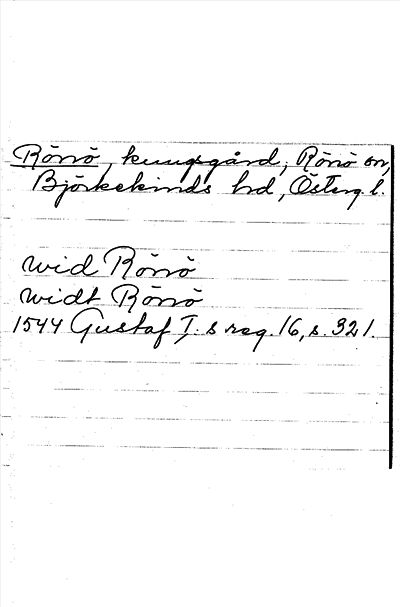 Rönö, kungsgård, Rönö sn,
Björkekinds hd, Österg. l.
wid Rönö
widt Rönö
1544 Gustaf I:s reg. 16, s. 321.